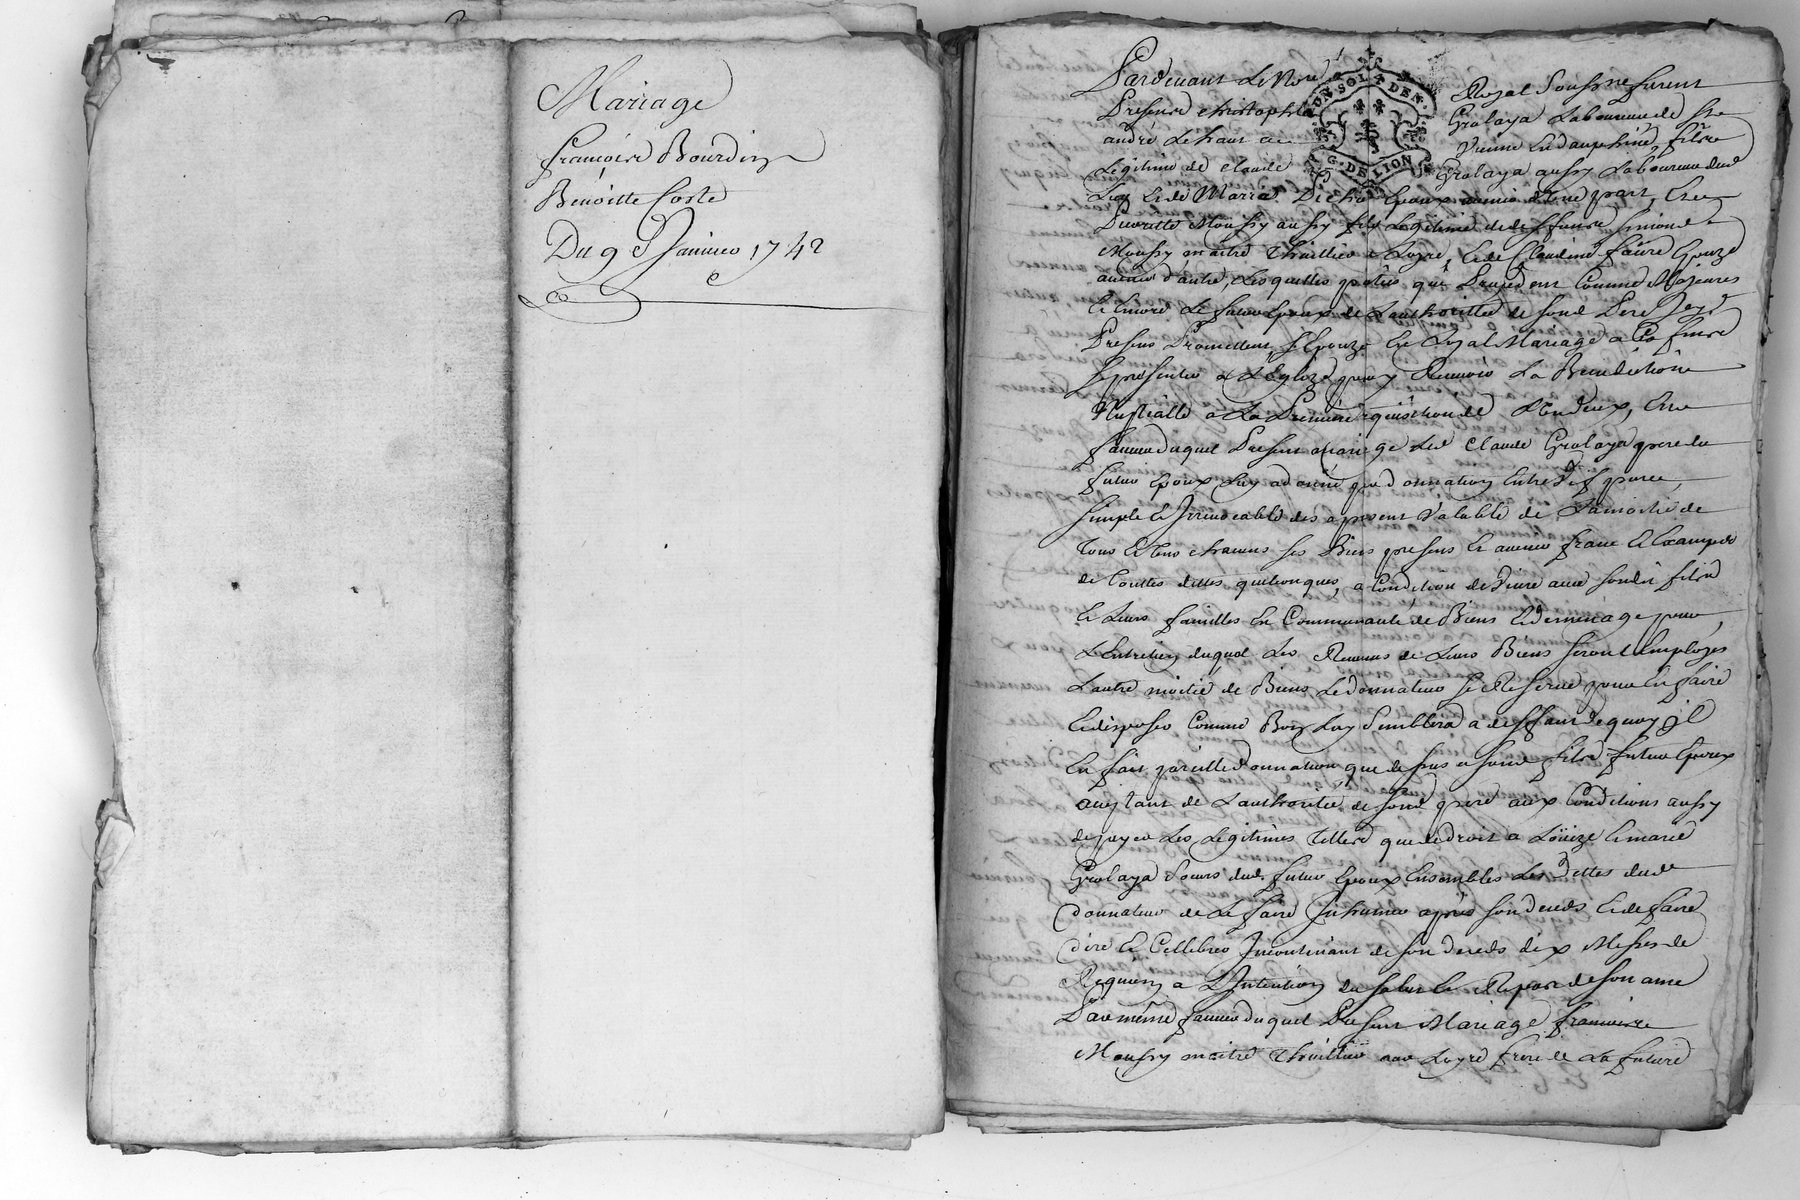 Mariage
françoise Bourdin
Benoitte Coste
Du 9e Janvier 1742
Pardevant Le Nore Royal Soussne furent
UN SOL 4 DEN.
G. DE LION
Presens christophle Grolaya Laboureur de St
andré Le haut a Vienne En dauphiné, filse
Légitime de claude Grolaya aussy Laboureur dud
Lieu Et de Marie époux avenir d'Une part, Et
Pierrette Moussy aussy fille Légitime de deffeunt Simond
Moussy maitre thuillier a Loyre, Et de Claudine faure Epouze
avenir d'autre, Lesquelles parties qui Procedent Comme Majeures
Et Encore Le futur Epoux de L'authoritté de sond Pere Icy
Presens Promettent s'Epouze En Loyal Mariage a
se presenter a L'Eglize pour y Recevoir La Benediction
Nuptialle a La Premiere réquisition de L'un d'eux, En
faveur duquel Present mariage Led claude Grolaya pere du
futur Epoux Luy a donné par donnation Entre Vif pure
simple Et Irrevocable des apresent Valable de La moitié de
Tous Et Uns chacuns ses Biens presens Et avenir franc Et Exampt
de touttes dettes quelconques, a Condition de Vivre avec sondit filse
Et Leurs familles En Communauté de Biens Et de menage pour
L'Entretien duquel Les Revenus de Leurs Biens seront Employés
L'autre moitié de Biens Le donnateur se Reserve pour En faire
Et disposer Comme Bon Luy Semblera a deffaut de quoy Il
En fait pareille donnation que dessus a sond filse futur Epoux
de L'authorité de sond pere aux Conditions aussy
de payer Les Légitimes telles que de droit a Loüize Et marie
Grolaya soeurs dud futur Epoux Ensembles Les Dettes dud
donnateur de Le faire Inhumer après son deceds Et de faire
dire Et Cellebrer Incontinant de son deceds dix Messes de
Requiem a L'Intention du salut Et Repos de son ame
Pareillement faveur duquel Present Mariage françoise
Moussy maitre thuillier aud Loyre frere de La future